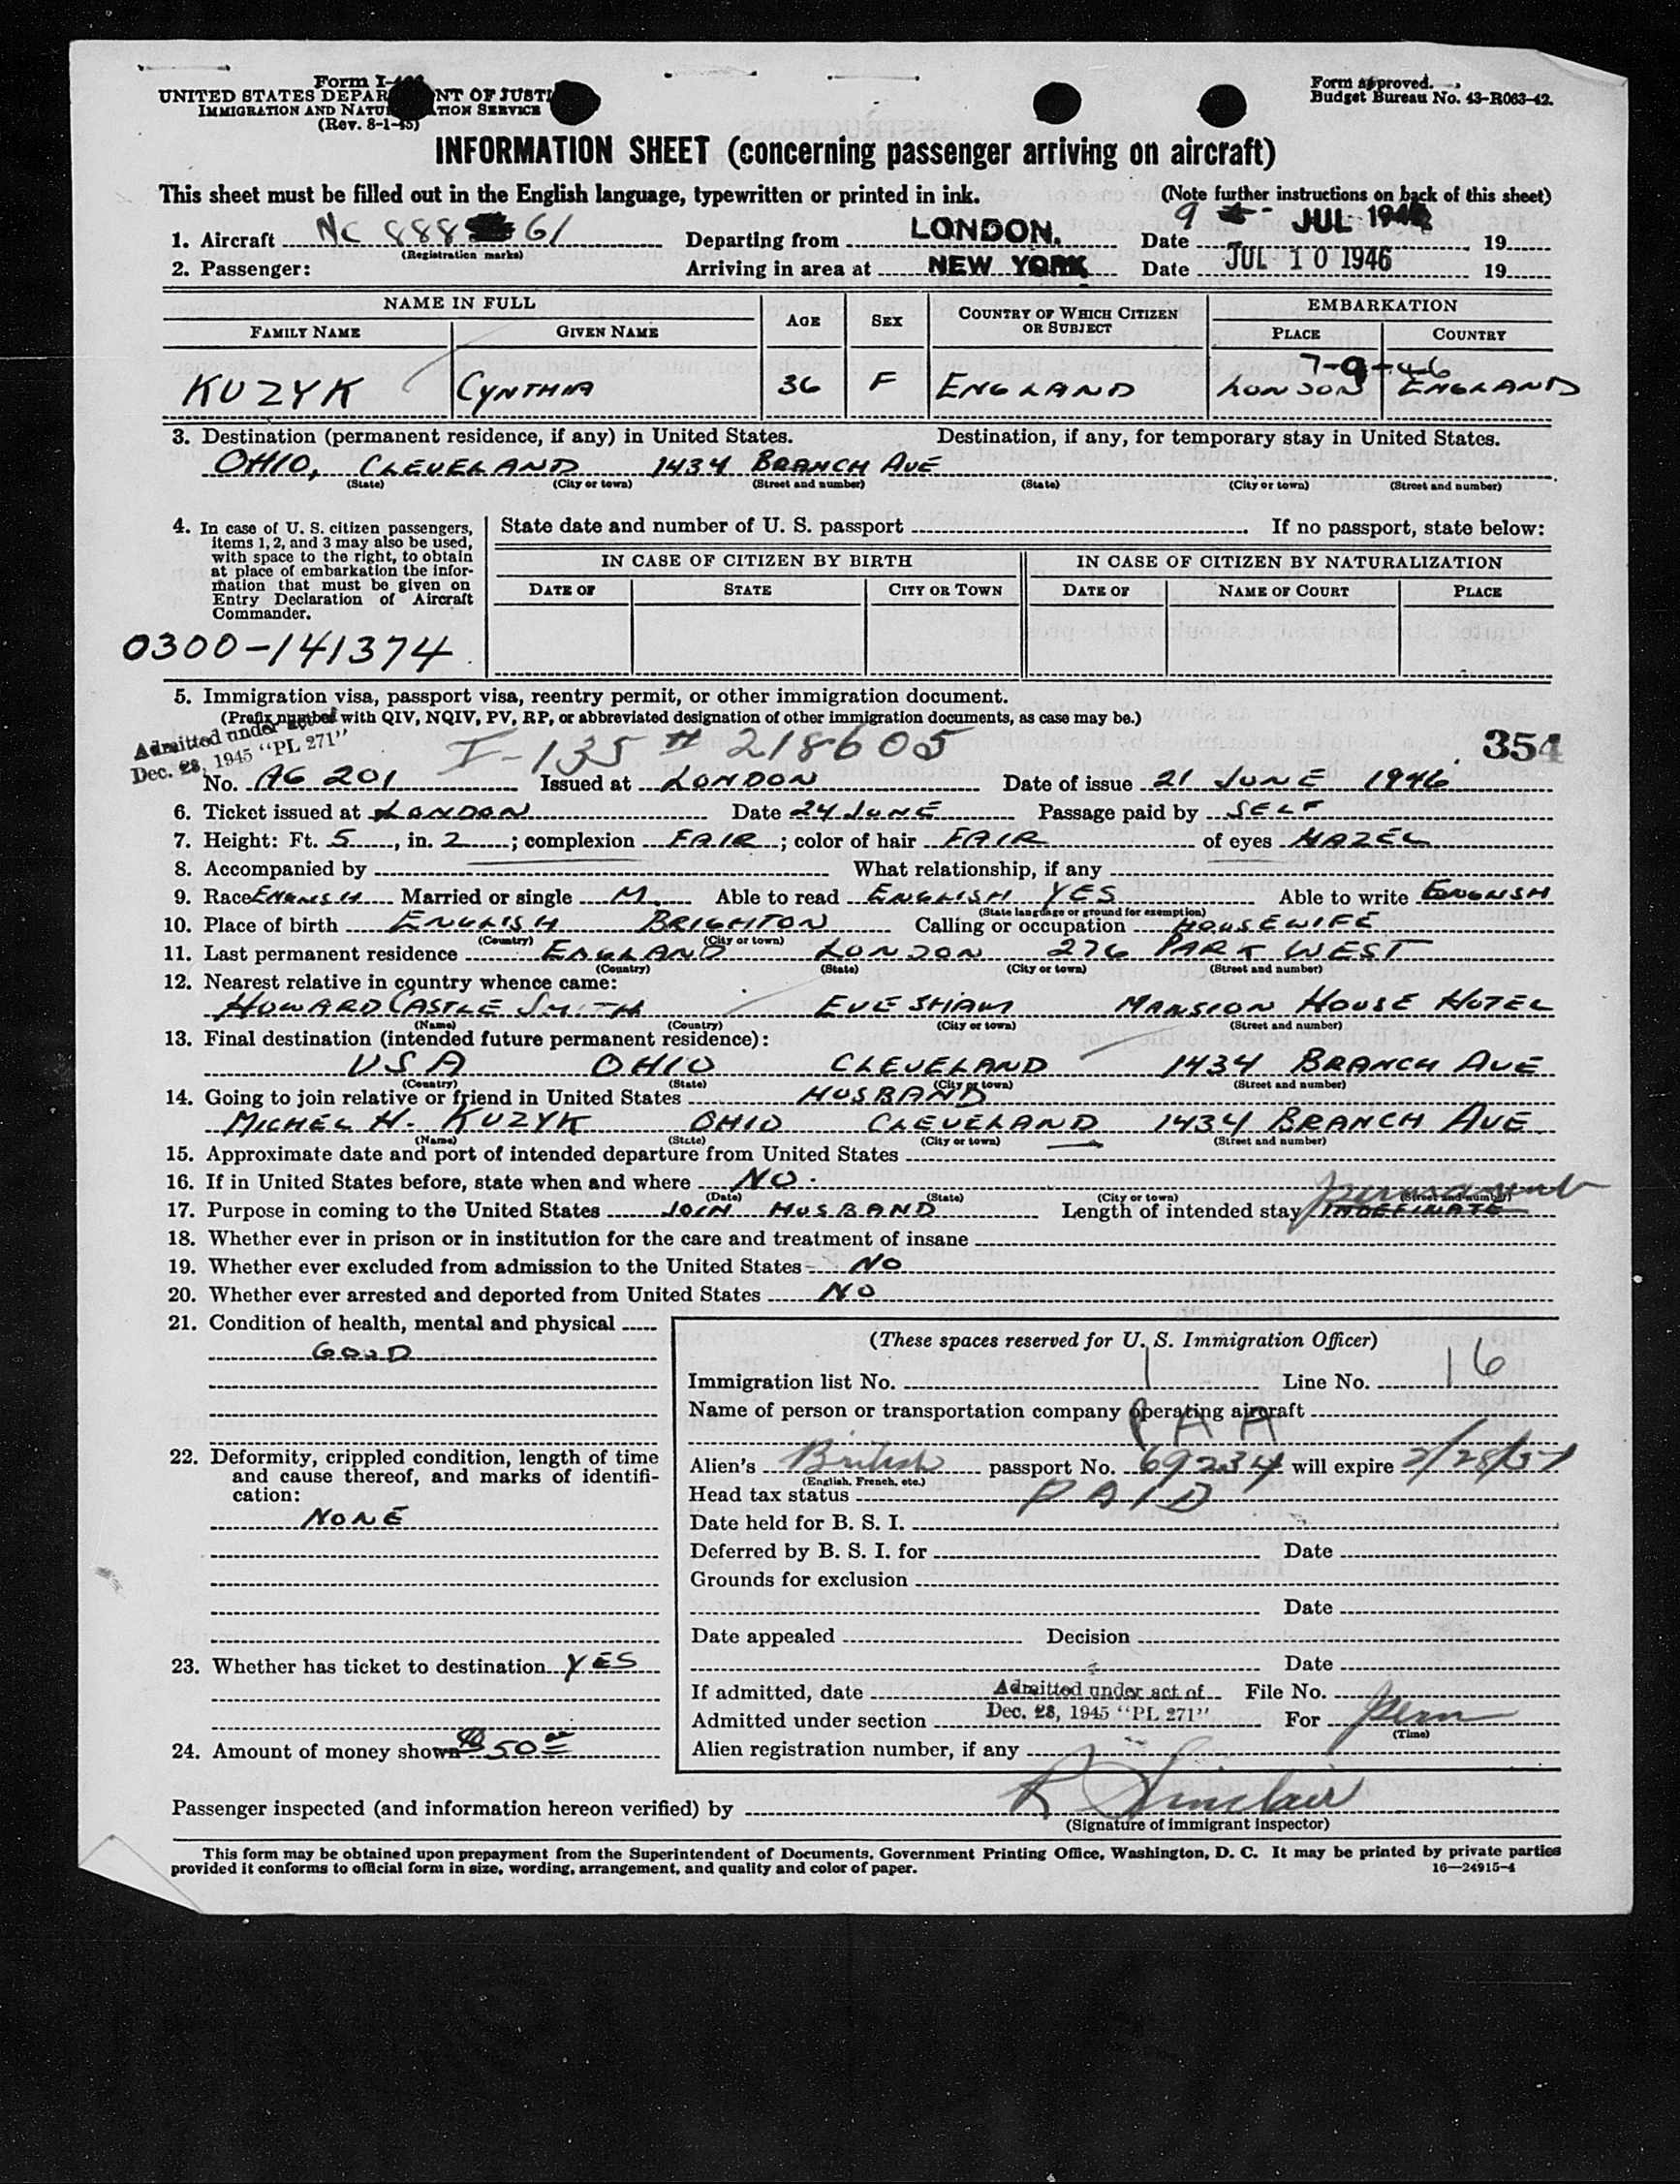 Form I-466
UNITED STATES DEPARTMENT OF JUSTICE
IMMIGRATION AND NATURALIZATION SERVICE
(Rev. 8-1-45)
Form approved.
Budget Bureau No. 43-R063-42.
INFORMATION SHEET (concerning passenger arriving on aircraft)
This sheet must be filled out in the English language, typewritten or printed in ink. (Note further instructions on back of this sheet)
1. Aircraft NC 888 61 Departing from LONDON. Date 9 JUL 1946 19
(Registration marks)
2. Passenger: Arriving in area at NEW YORK Date JUL 10 1946 19
NAME IN FULL AGE SEX COUNTRY OF WHICH CITIZEN OR SUBJECT EMBARKATION
FAMILY NAME GIVEN NAME PLACE COUNTRY
7-9-46
KUZYK CYNTHIA 36 F ENGLAND LONDON ENGLAND
3. Destination (permanent residence, if any) in United States. Destination, if any, for temporary stay in United States.
OHIO, CLEVELAND 1434 BRANCH AVE
(State) (City or town) (Street and number) (State) (City or town) (Street and number)
4. In case of U. S. citizen passengers, items 1, 2, and 3 may also be used, with space to the right, to obtain at place of embarkation the information that must be given on Entry Declaration of Aircraft Commander.
State date and number of U. S. passport If no passport, state below:
IN CASE OF CITIZEN BY BIRTH IN CASE OF CITIZEN BY NATURALIZATION
DATE OF STATE CITY OR TOWN DATE OF NAME OF COURT PLACE
0300-141374
5. Immigration visa, passport visa, reentry permit, or other immigration document.
(Prefix number with QIV, NQIV, PV, RP, or abbreviated designation of other immigration documents, as case may be.)
Admitted under act of
Dec. 28, 1945 "PL 271"
I-135 # 218605 354
No. AG 201 Issued at LONDON Date of issue 21 JUNE 1946
6. Ticket issued at LONDON Date 24 JUNE Passage paid by SELF
7. Height: Ft. 5, in. 2; complexion FAIR; color of hair FAIR of eyes HAZEL
8. Accompanied by What relationship, if any
9. Race ENGLISH Married or single M. Able to read ENGLISH YES Able to write ENGLISH
(State language or ground for exemption)
10. Place of birth ENGLISH BRIGHTON Calling or occupation HOUSEWIFE
(Country) (City or town)
11. Last permanent residence ENGLAND LONDON 276 PARK WEST
(Country) (State) (City or town) (Street and number)
12. Nearest relative in country whence came:
HOWARD CASTLE SMITH EVESHAM MANSION HOUSE HOTEL
(Name) (Country) (City or town) (Street and number)
13. Final destination (intended future permanent residence):
USA OHIO CLEVELAND 1434 BRANCH AVE
(Country) (State) (City or town) (Street and number)
14. Going to join relative or friend in United States HUSBAND
MICHEL H. KUZYK OHIO CLEVELAND 1434 BRANCH AVE.
(Name) (State) (City or town) (Street and number)
15. Approximate date and port of intended departure from United States
16. If in United States before, state when and where NO.
(Date) (State) (City or town) (Street and number)
17. Purpose in coming to the United States JOIN HUSBAND Length of intended stay INDEFINATE permanent
18. Whether ever in prison or in institution for the care and treatment of insane
19. Whether ever excluded from admission to the United States NO
20. Whether ever arrested and deported from United States NO
21. Condition of health, mental and physical
GOOD
22. Deformity, crippled condition, length of time and cause thereof, and marks of identification:
NONE
23. Whether has ticket to destination YES
24. Amount of money shown $50
(These spaces reserved for U. S. Immigration Officer)
Immigration list No. 1 Line No. 16
Name of person or transportation company operating aircraft
PAA
Alien's British passport No. 69234 will expire 2/28/51
(English, French, etc.)
Head tax status PAID
Date held for B. S. I.
Deferred by B. S. I. for Date
Grounds for exclusion
Date
Date appealed Decision
Date
If admitted, date Admitted under act of File No.
Admitted under section Dec. 28, 1945 "PL 271" For perm
(Time)
Alien registration number, if any
Passenger inspected (and information hereon verified) by R Sinclair
(Signature of immigrant inspector)
This form may be obtained upon prepayment from the Superintendent of Documents, Government Printing Office, Washington, D. C. It may be printed by private parties
provided it conforms to official form in size, wording, arrangement, and quality and color of paper. 16—24915-4